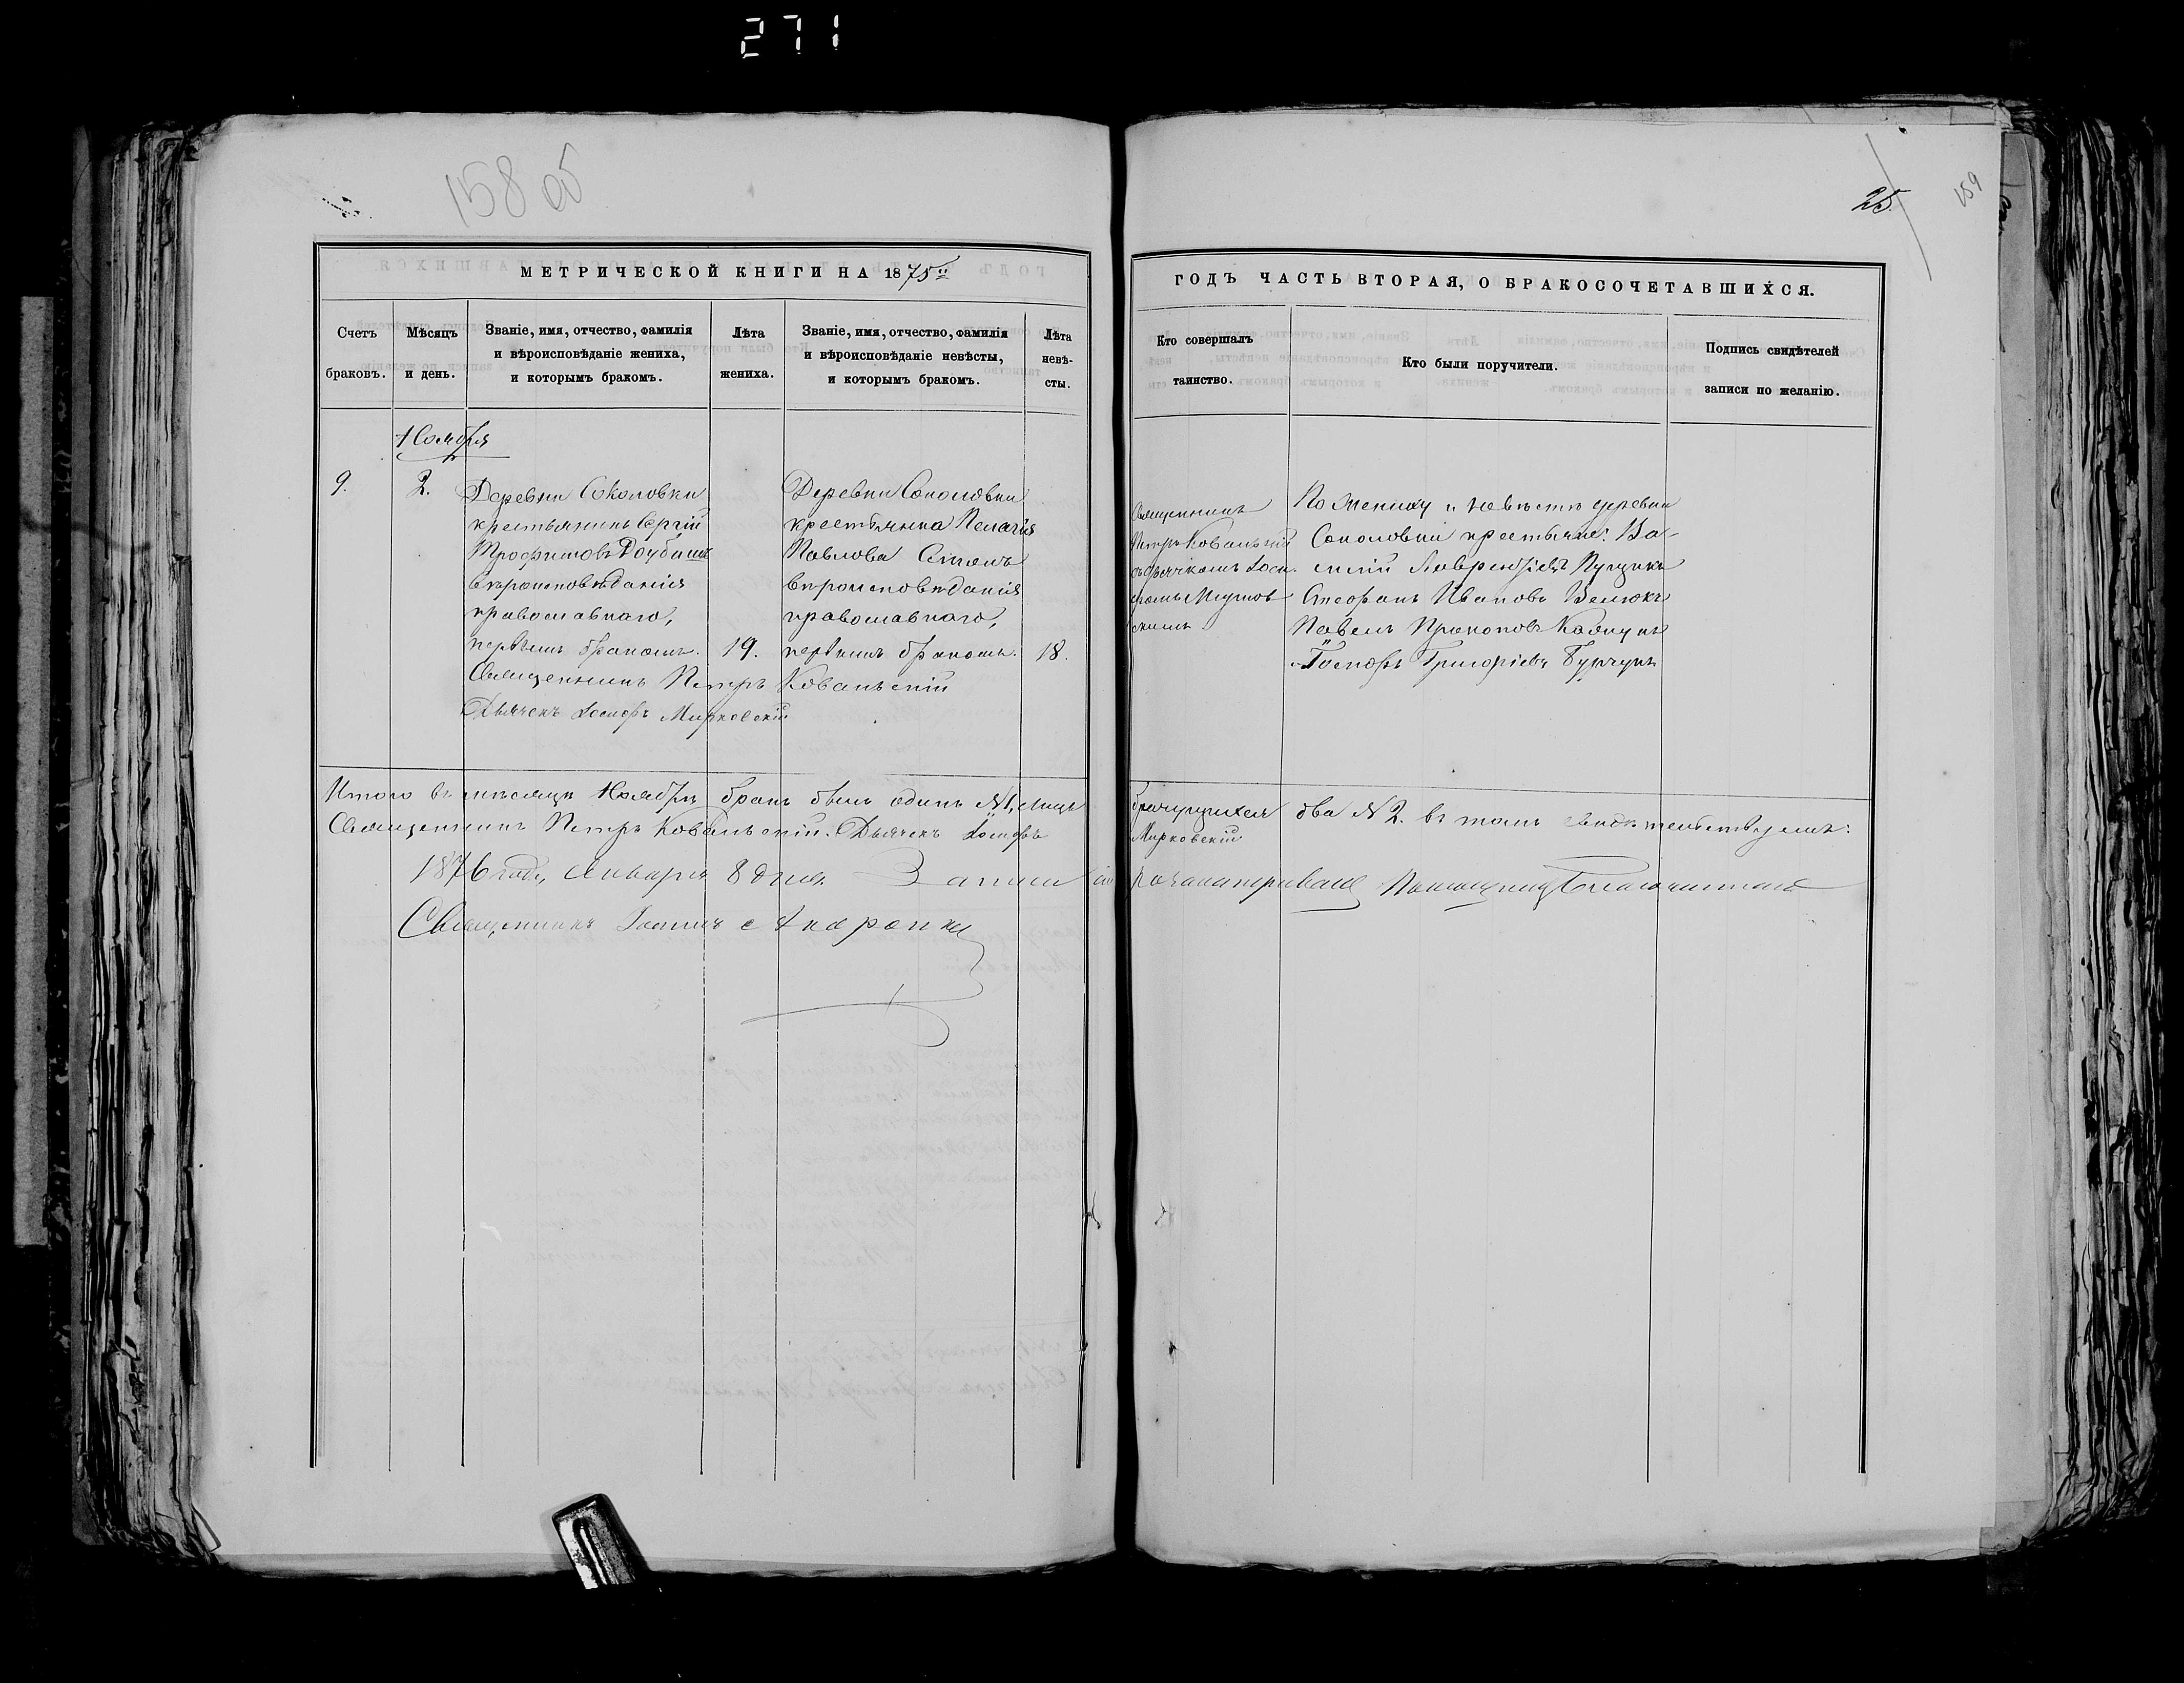 271
158 об
25
159
МЕТРИЧЕСКОЙ КНИГИ НА 1875й
ГОДЪ ЧАСТЬ ВТОРАЯ, О БРАКОСОЧЕТАВШИХСЯ.
Счетъ браковъ.
Мѣсяцъ и день.
Званіе, имя, отчество, фамилія
и вѣроисповѣданіе жениха,
и которымъ бракомъ.
Лѣта жениха.
Званіе, имя, отчество, фамилія
и вѣроисповѣданіе невѣсты,
и которымъ бракомъ.
Лѣта невѣ-
сты.
Кто совершалъ
таинство.
Кто были поручители.
Подпись свидѣтелей
записи по желанію.
Ноября
9.
2.
Деревни Соколовки
крестьянинъ Сергій
Трофимовъ
вѣроисповѣданія
православнаго,
первымъ бракомъ.
19.
Деревни Соколовки
крестьянка Пелагія
Павлова
вѣроисповѣданія
православнаго,
первымъ бракомъ.
18.
Священникъ Петръ Ковальскій
Дьячекъ Іосифъ Мирковскій
Священникъ
Петръ Ковальскій
съ дьячкомъ Іоси-
фомъ Мирков
скимъ
По жениху и невѣстѣ деревни
Соколовки крестьяне: Ва-
силій Лаврентіевъ
Стефанъ Ивановъ Велюкъ
Павелъ Прокоповъ
и Іосифъ Григоріевъ
Итого въ мѣсяцѣ Ноябрѣ бракъ былъ одинъ №1, лицъ
брачущихся два №2. въ томъ свидѣтельствуемъ:
Священникъ Петръ Ковальскій. Дьячекъ Іосифъ
Мирковскій
1876 года, Января 8 дня.
Священникъ